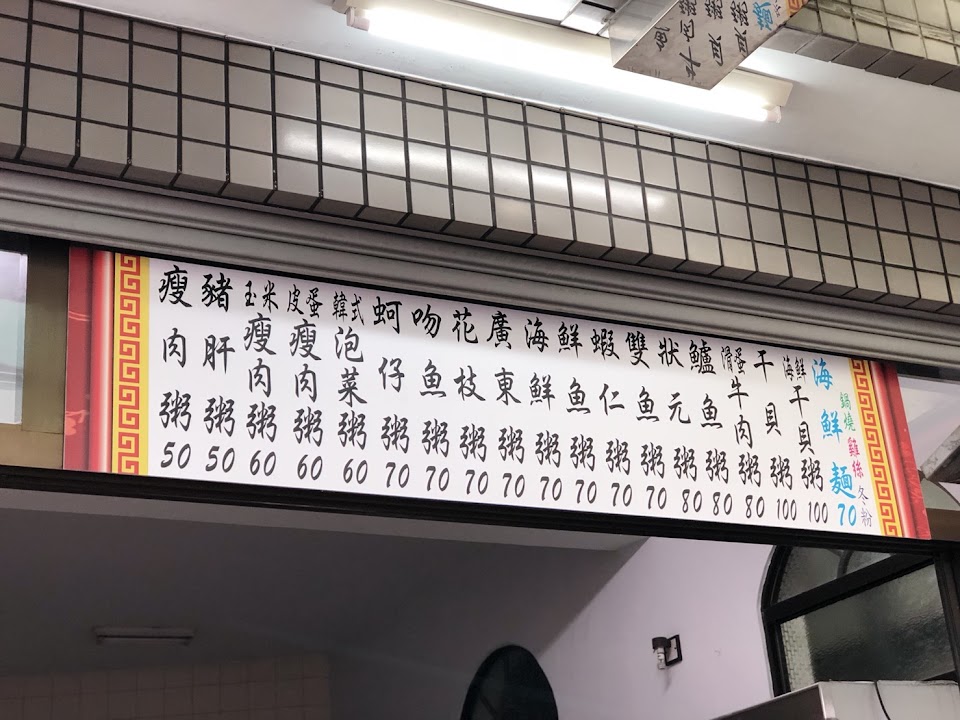 瘦肉粥50
豬肝粥50
玉米瘦肉粥60
皮蛋瘦肉粥60
韓式泡菜粥60
蚵仔粥70
吻魚粥70
花枝粥70
廣東粥70
海鮮粥70
鮮魚粥70
蝦仁粥70
雙魚粥70
狀元粥80
鱸魚粥80
滑蛋牛肉粥80
干貝粥100
海鮮干貝粥100
海鮮麵70
鍋燒雞絲冬粉